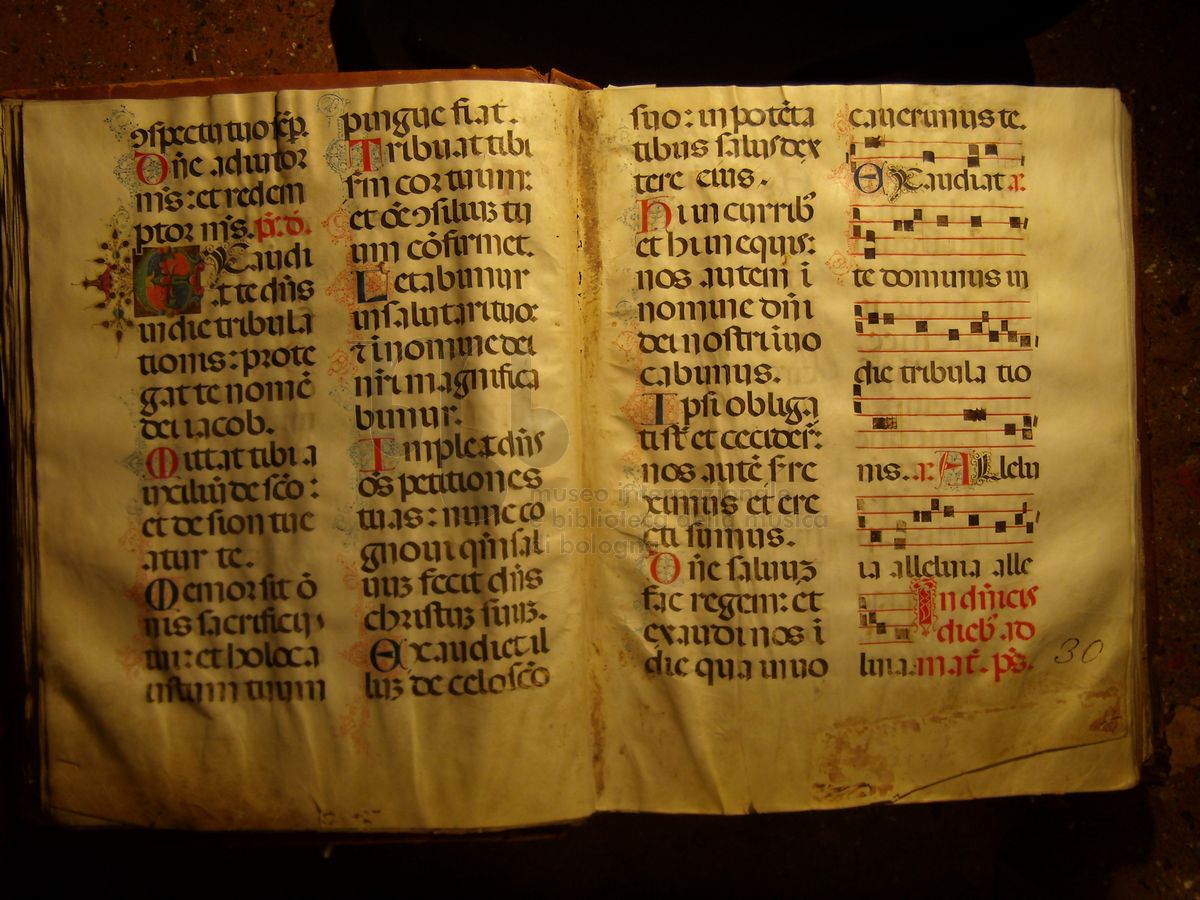 ɔspectu tuo sēp.
Dn̄e adiutor
ms̄: et redem
ptor ms̄. ps̄. d̄.
Exaudi
at te dn̄s
in die tribula
tionis: prote
gat te nomē
dei iacob.
Mittat tibi a
uxiliū de scō:
et de sion tue
atur te.
Memor sit ō
nis sacrificij
tui: et holoca
ustum tuum
pingue fiat.
Tribuat tibi
sm̄ cor tuum:
et oē ɔsiliuꝫ tu
um cōfirmet.
Letabimur
in salutari tuo:
⁊ ī nomine dei
nr̄i magnifica
bimur.
Impleat dn̄s
oēs petitiones
tuas: nunc co
gnoui qm̄ sal
uuꝫ fecit dn̄s
christuꝫ suuꝫ.
Exaudiet il
luꝫ de celo scō
suo: in potēta
tibus salus dex
tere eius.
Hi in currib⁹
et hi in equis:
nos autem ī
nomine dn̄i
dei nostri inuo
cabimus.
Ipsi obliga
ti sūt et cecidert̄:
nos autē surre
ximus et ere
cti sumus.
Dn̄e saluuꝫ
fac regem: et
exaudi nos ī
die qua inuo
cauerimus te.
Exaudiat a:
te dominus in
die tribulatio
nis. a: Allelu
ia alleluia alle
In dn̄icis
dieb⁹ ad
luia. mat̄. ps̄.
30
museo internazionale
e biblioteca della musica
di bologna